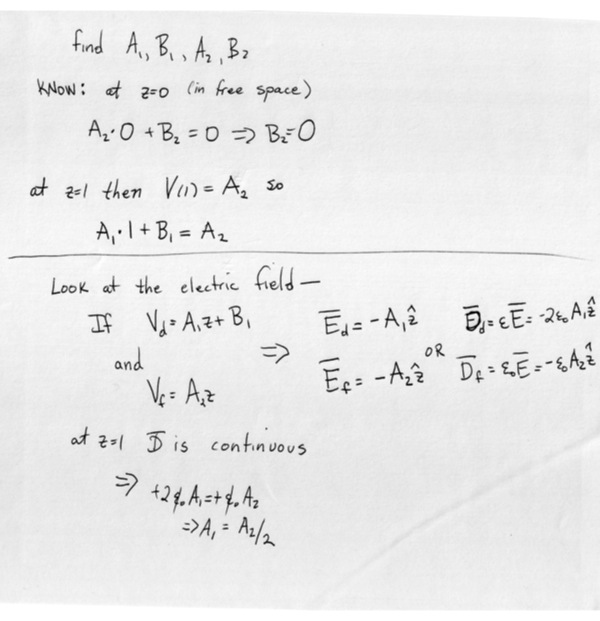 find A₁, B₁, A₂, B₂
KNOW: at z=0 (in free space)
A₂·0 + B₂ = 0 ⇒ B₂=0
at z=1 then V(1) = A₂ so
A₁·1 + B₁ = A₂
Look at the electric field —
If V_d = A₁z + B₁ ⇒ E̅_d = -A₁ẑ D̅_d = εE̅ = -2ε₀A₁ẑ
and OR
V_f = A₂z E̅_f = -A₂ẑ D̅_f = ε₀E̅ = -ε₀A₂ẑ
at z=1 D̅ is continuous
⇒ +2ε₀A₁ = +ε₀A₂
⇒ A₁ = A₂/2